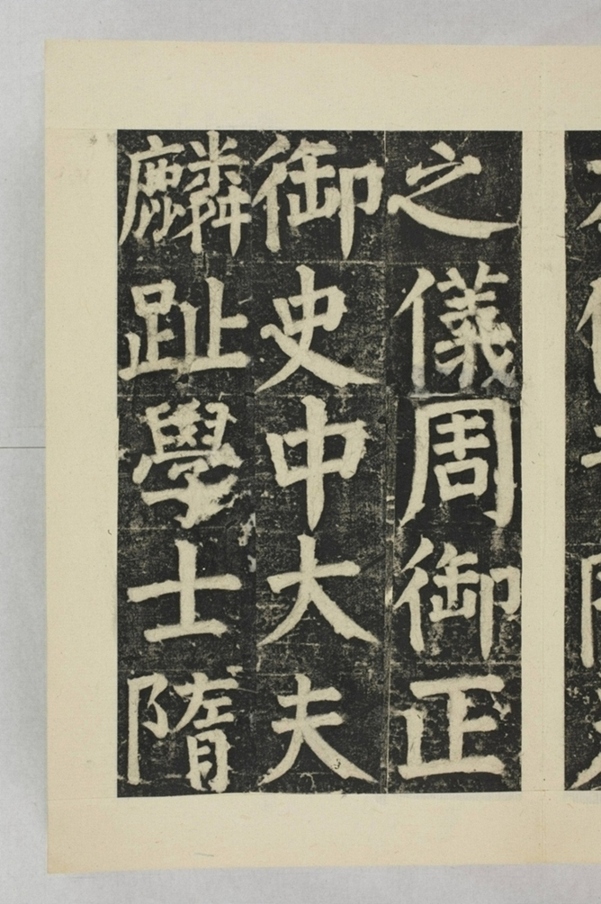 之儀周御正
御史中大夫
麟趾學士隋